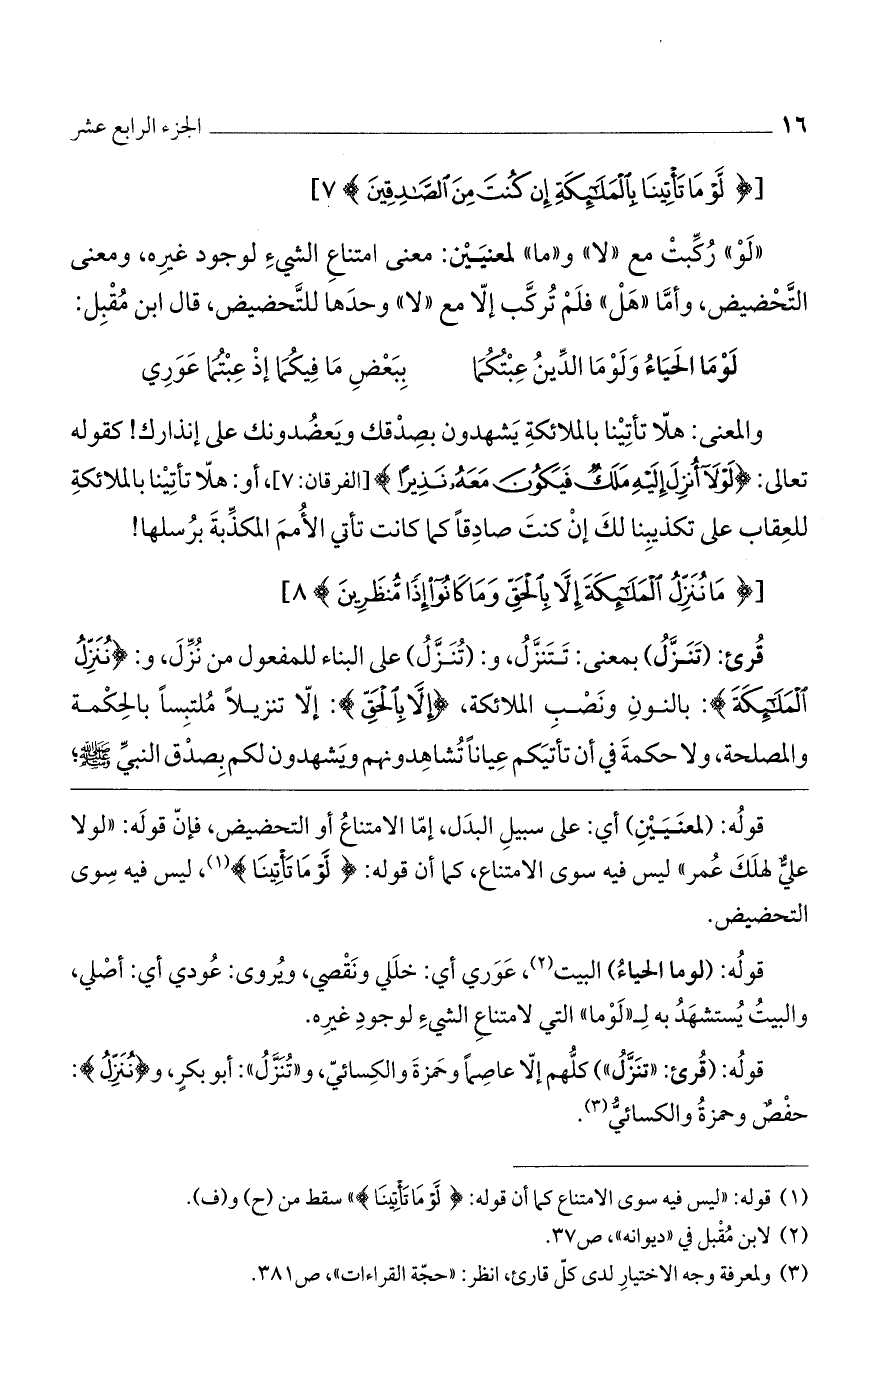 ١٦ الجزء الرابع عشر
[﴿ لَّوْ مَا تَأْتِينَا بِالْمَلَٰٓئِكَةِ إِن كُنتَ مِنَ الصَّٰدِقِينَ ﴾ ٧]
«لَوْ» رُكِّبتْ مع «لا» و«ما» لمعنيَيْن: معنى امتناعِ الشيءِ لوجود غيرِه، ومعنى
التَّحْضيض، وأمَّا «هَلْ» فلَمْ تُركَّب إلّا مع «لا» وحدَها للتَّحضيض، قال ابن مُقْبِل:
لَوْمَا الحَيَاءُ وَلَوْمَا الدِّينُ عِبْتُكُمَا بِبَعْضِ مَا فِيكُمَا إذْ عِبْتُمَا عَوَرِي
والمعنى: هلّا تأتِيْنا بالملائكةِ يَشهدون بصِدْقك ويَعضُدونك على إنذارك! كقوله
تعالى: ﴿لَوْلَآ أُنزِلَ إِلَيْهِ مَلَكٌ فَيَكُونَ مَعَهُۥ نَذِيرًا ﴾ [الفرقان: ٧]، أو: هلّا تأتِيْنا بالملائكةِ
للعِقاب على تكذيبِنا لكَ إنْ كنتَ صادِقاً كما كانت تأتي الأُممَ المكذِّبةَ برُسلها!
[﴿ مَا نُنَزِّلُ الْمَلَٰٓئِكَةَ إِلَّا بِالْحَقِّ وَمَا كَانُوٓا إِذًا مُّنظَرِينَ ﴾ ٨]
قُرئ: (تَنَـزَّلُ) بمعنى: تَـتَنزَّلُ، و: (تُنَـزَّلُ) على البناء للمفعول من نُزِّلَ، و: ﴿نُنَزِّلُ
الْمَلَٰٓئِكَةَ ﴾: بالنـونِ ونَصْـبِ الملائكة، ﴿إِلَّا بِالْحَقِّ ﴾: إلّا تنزيـلاً مُلتبِساً بالحِكْمـة
والمصلحة، ولا حكمةَ في أن تأتيَكم عِياناً تُشاهِدونهم ويَشهدون لكم بِصدْق النبيِّ ﷺ؛
قولُه: (لمعنَـيَـيْنِ) أي: على سبيلِ البدَل، إمّا الامتناعُ أو التحضيض، فإنّ قولَه: «لولا
عليٌّ لهلَكَ عُمر» ليس فيه سوى الامتناع، كما أن قوله: ﴿ لَّوْ مَا تَأْتِينَا ﴾(١)، ليس فيه سِوى
التحضيض.
قولُه: (لوما الحياءُ) البيت(٢)، عَوَري أي: خلَلي ونَقْصي، ويُروى: عُودي أي: أصْلي،
والبيتُ يُستشهَدُ به لِـ«لَوْما» التي لامتناعِ الشيءِ لوجودِ غيرِه.
قولُه: (قُرئ: «تنَزَّلُ») كلُّهم إلّا عاصِماً وحَمزةَ والكِسائيّ، و«تُنَزَّلُ»: أبو بكرٍ، و﴿نُنَزِّلُ ﴾:
حفْصٌ وحمزةُ والكسائيُّ(٣).
(١) قوله: «ليس فيه سوى الامتناع كما أن قوله: ﴿ لَّوْ مَا تَأْتِينَا ﴾» سقط من (ح) و(ف).
(٢) لابن مُقْبل في «ديوانه»، ص٣٧.
(٣) ولمعرفة وجه الاختيارِ لدى كلّ قارئ، انظر: «حجّة القراءات»، ص٣٨١.